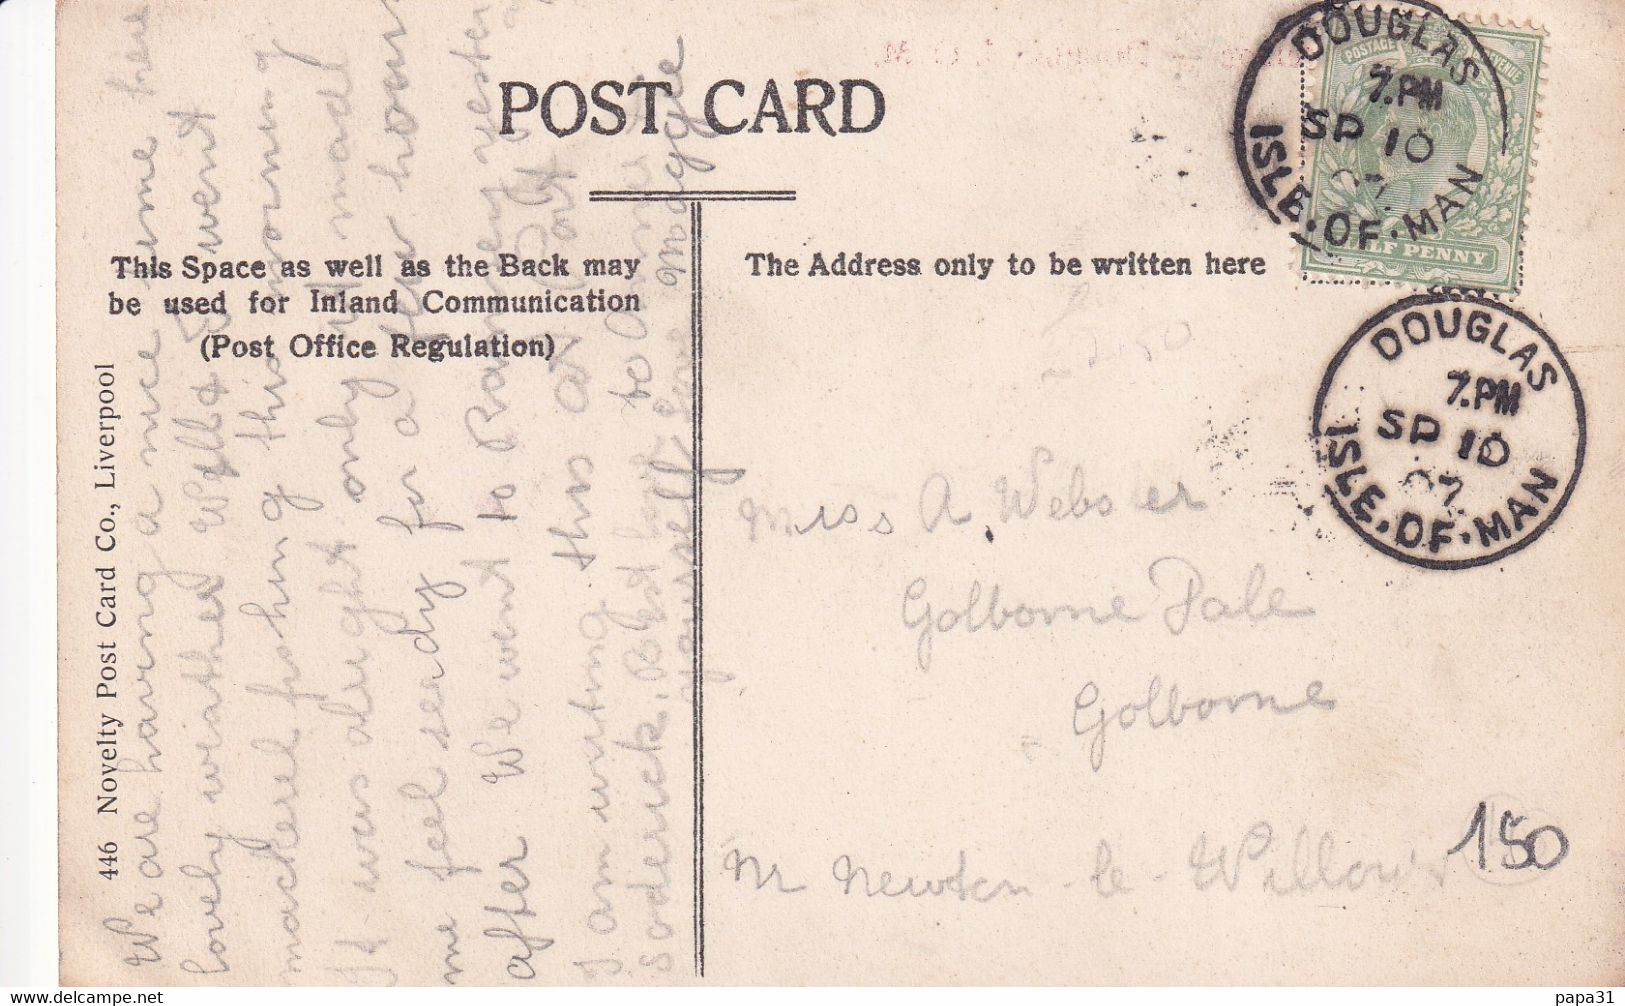 POST CARD
This Space as well as the Back may
be used for Inland Communication
(Post Office Regulation)
The Address only to be written here
446 Novelty Post Card Co., Liverpool
DOUGLAS
7.PM
SP 10
07
ISLE.OF.MAN
POSTAGE REVENUE
HALF PENNY
DOUGLAS
7.PM
SP 10
07
ISLE.OF.MAN
We are having a nice time here
lovely weather Will & I went
mackerel fishing this morning
It was alright only it made
me feel seedy for a few hours
after. We went to Ramsey
I am writing this at Port
Soderick. Best love to Annie &
yourself, love Maggie
Miss A Webster
Golborne Dale
Golborne
Nr Newton-le-Willows
150
papa31